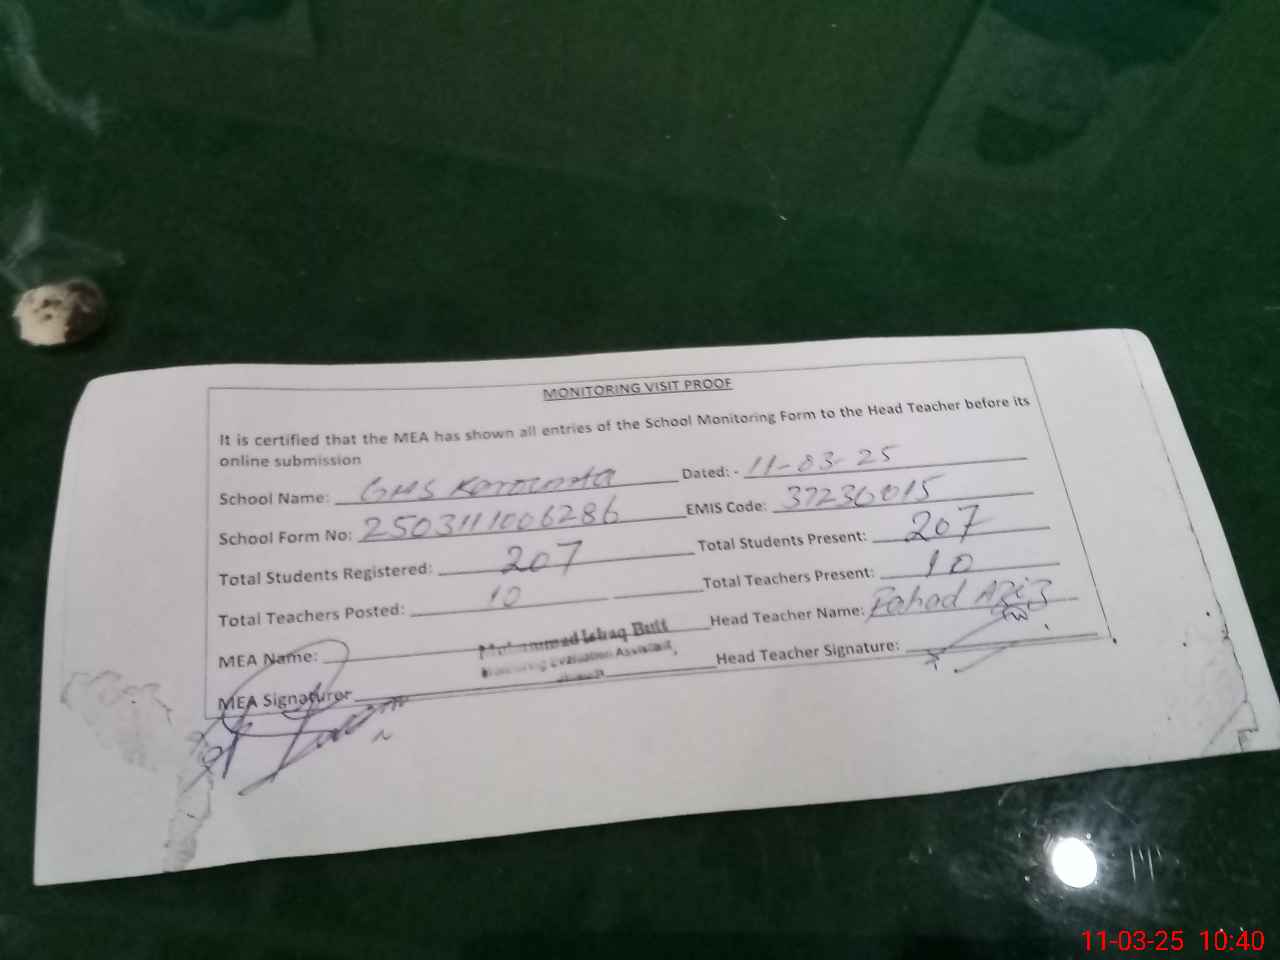 MONITORING VISIT PROOF
It is certified that the MEA has shown all entries of the School Monitoring Form to the Head Teacher before its
online submission
School Name: GHS Dated: - 11-03-25
School Form No: 2503111006286 EMIS Code: 37236015
Total Students Registered: 207 Total Students Present: 207
Total Teachers Posted: 10 Total Teachers Present: 10
MEA Name: Muhammad Ishaq Butt Head Teacher Name: Fahad Aziz
Monitoring Evaluation Assistant,
MEA Signature: Head Teacher Signature:
11-03-25 10:40